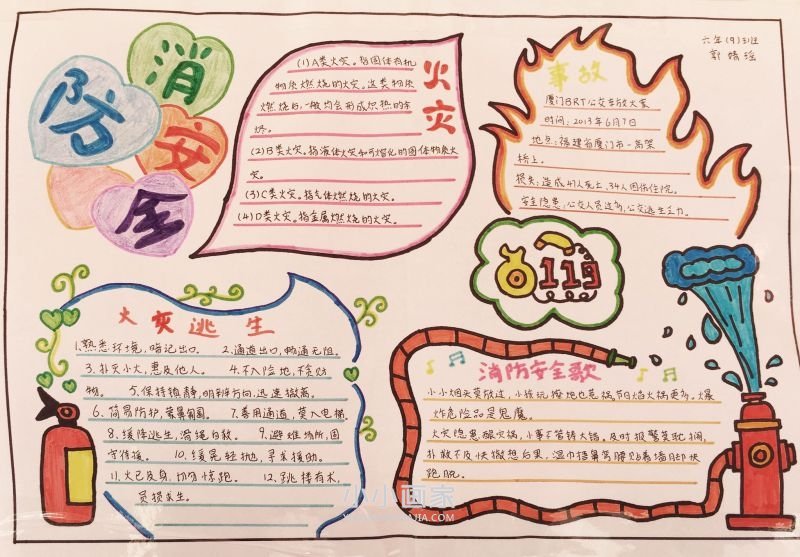 六年(9)班
郭婧瑶
消
防
安
全
火灾
(1)A类火灾。指固体有机
物质燃烧的火灾。这类物质
燃烧后,一般均会形成炽热的余
烬。
(2)B类火灾。指液体火灾和可熔化的固体物质火
灾。
(3)C类火灾。指气体燃烧的火灾。
(4)D类火灾。指金属燃烧的火灾。
事故
厦门BRT公交车放火案
时间:2013年6月7日
地点:福建省厦门市一高架
桥上。
损失:造成47人死亡,34人因伤住院。
安全隐患:公交人员过多,公交逃生乏力。
119
火灾逃生
1.熟悉环境,暗记出口。 2.通道出口,畅通无阻。
3.扑灭小火,惠及他人。 4.不入险地,不贪财
物。 5.保持镇静,明辨方向,迅速撤离。
6.简易防护,蒙鼻匍匐。 7.善用通道,莫入电梯。
8.缓降逃生,滑绳自救。 9.避难场所,固
守待援。 10.缓晃轻抛,寻求援助。
11.火已及身,切勿惊跑。 12.跳楼有术,
员损求生。
消防安全歌
小小烟头莫放过,小孩玩撩也惹祸,节日焰火祸更多,爆
炸危险品是鬼魔。
火灾隐患酿灾祸,小事不管铸大错,及时报警莫耽搁,
扑救不及快撤想后果,湿巾捂鼻弯腰贴着墙脚快
跑脱。
小小画家